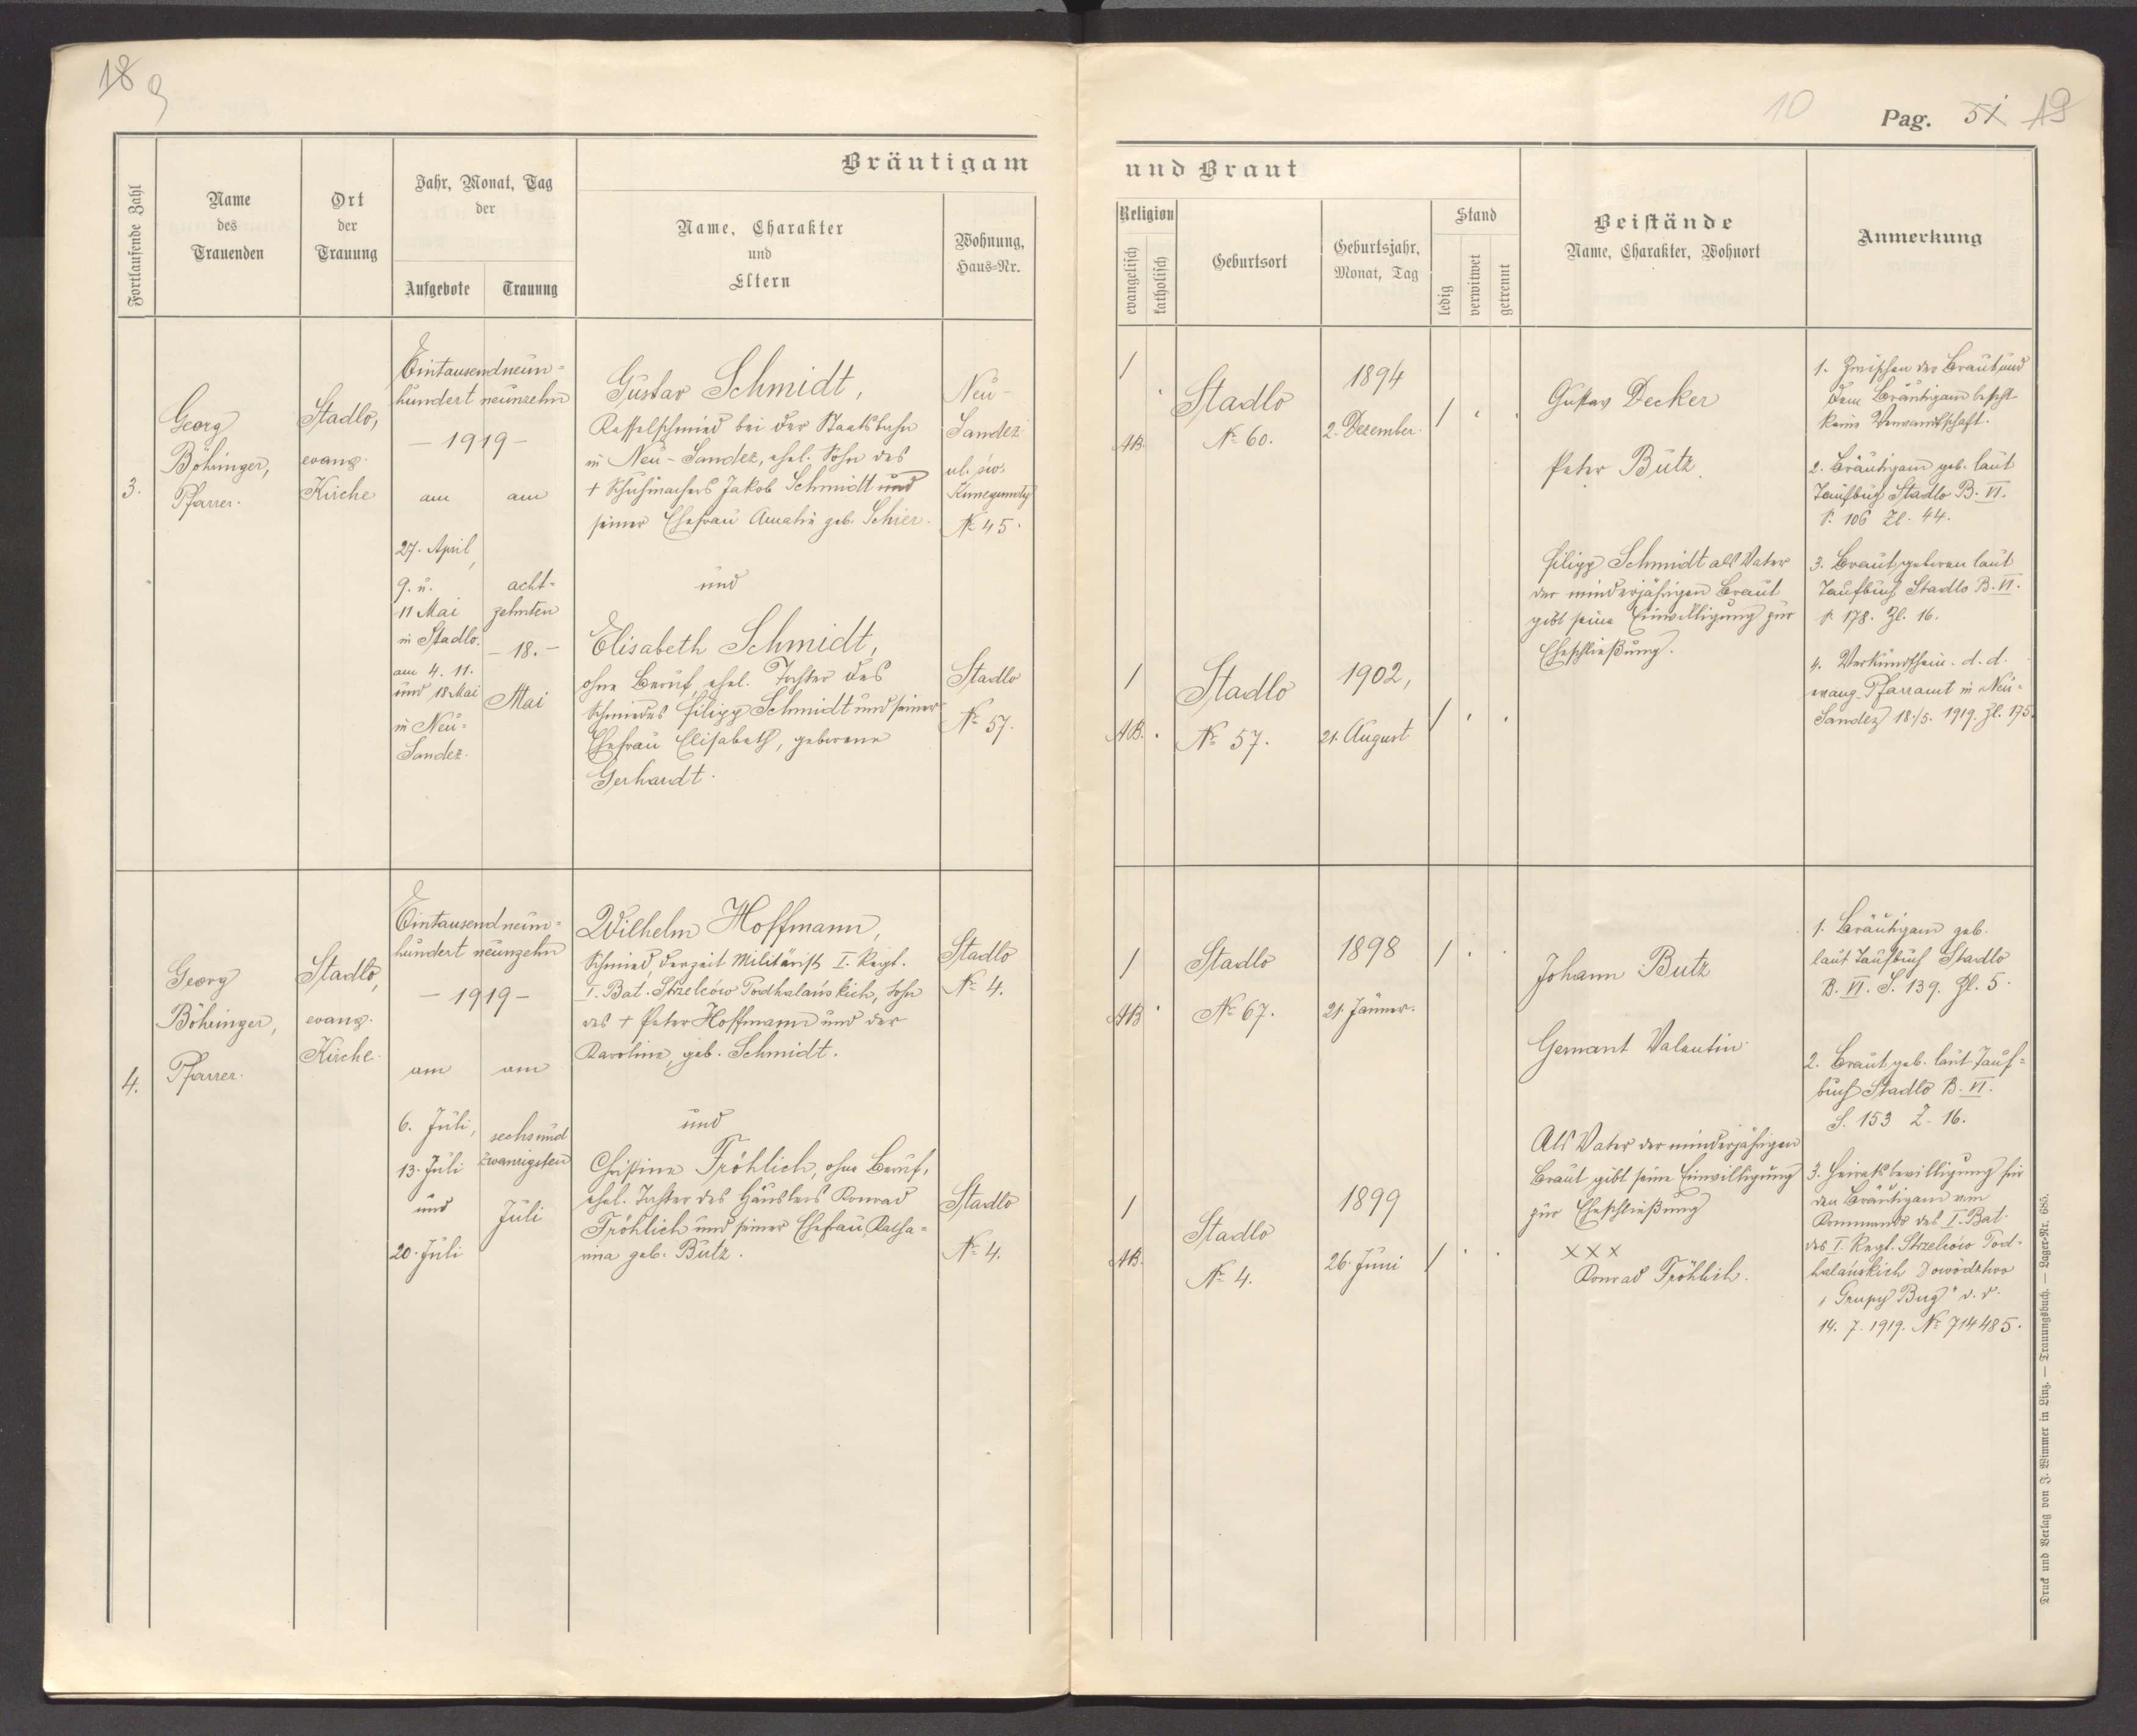 18 9
10
Pag. 51 19
Bräutigam
und Braut
Fortlaufende Zahl
Name
des
Trauenden
Ort
der
Trauung
Jahr, Monat, Tag
der
Aufgebote
Trauung
Name, Charakter
und
Eltern
Wohnung,
Haus-Nr.
Religion
evangelisch
katholisch
Geburtsort
Geburtsjahr,
Monat, Tag
Stand
ledig
verwitwet
getrennt
Beistände
Name, Charakter, Wohnort
Anmerkung
3.
Georg
Böhringer,
Pfarrer.
Stadlo,
evang.
Kirche
Eintausendneun-
hundert neunzehn
- 1919 -
am
27. April,
9. u.
11 Mai
in Stadlo.
am 4. 11.
und 18 Mai
in Neu-
Sandez.
am
acht-
zehnten
- 18. -
Mai
Gustav Schmidt,
Kesselschmied bei der Staatsbahn
in Neu-Sandez, ehel. Sohn des
+ Schuhmachers Jakob Schmidt und
seiner Ehefrau Amalie geb. Schier.
und
Elisabeth Schmidt,
ohne Beruf, ehel. Tochter des
Schmiedes Filipp Schmidt und seiner
Ehefrau Elisabeth, geborene
Gerhardt.
Neu-
Sandez
ul. św.
Kunegundy
№ 45.
Stadlo
№ 57.
/
AB.
Stadlo
№ 60.
1894
2. Dezember.
/
/
AB.
Stadlo
№ 57.
1902,
21. August
/
Gustav Decker
Peter Butz.
Filipp Schmidt als Vater
der minderjährigen Braut
gibt seine Einwilligung zur
Eheschließung.
1. Zwischen der Braut und
dem Bräutigam besteht
keine Verwandtschaft.
2. Bräutigam geb. laut
Taufbuch Stadlo B. VI.
P. 106 Zl. 44.
3. Braut geboren laut
Taufbuch Stadlo B. VI.
P. 178. Zl. 16.
4. Verkündschein. d. d.
evang. Pfarramt in Neu-
Sandez 18./5. 1919. Zl. 175.
4.
Georg
Böhringer,
Pfarrer.
Stadlo,
evang.
Kirche.
Eintausendneun-
hundert neunzehn
- 1919 -
am
6. Juli,
13. Juli
und
20. Juli
am
sechsund
zwanzigsten
Juli
Wilhelm Hoffmann,
Schmied, derzeit Militärist I. Regt.
I. Bat. Strzelców Podhalańskich, Sohn
des + Peter Hoffmann und der
Karoline, geb. Schmidt.
und
Christine Fröhlich, ohne Beruf,
ehel. Tochter des Häuslers Konrad
Fröhlich und seiner Ehefrau Katha-
rina geb. Butz.
Stadlo
№ 4.
Stadlo
№ 4.
/
AB
Stadlo
№ 67.
1898
21. Jänner.
/
/
AB.
Stadlo
№ 4.
1899
26. Juni
/
Johann Butz
Gemant Valentin
Als Vater der minderjährigen
Braut gibt seine Einwilligung
zur Eheschließung
XXX
Konrad Fröhlich.
1. Bräutigam geb.
laut Taufbuch Stadlo
B. VI. S. 139. Zl. 5.
2. Braut geb. laut Tauf-
buch Stadlo B. VI.
S. 153 Z. 16.
3. Heiratsbewilligung für
den Bräutigam vom
Kommando des I. Bat.
des I. Regt. Strzelców Pod-
halańskich Dowództwo
„Grupy Bug" d. d.
14. 7. 1919. № 714485.
Druck und Verlag von J. Wimmer in Linz. — Trauungsbuch. — Lager-Nr. 685.